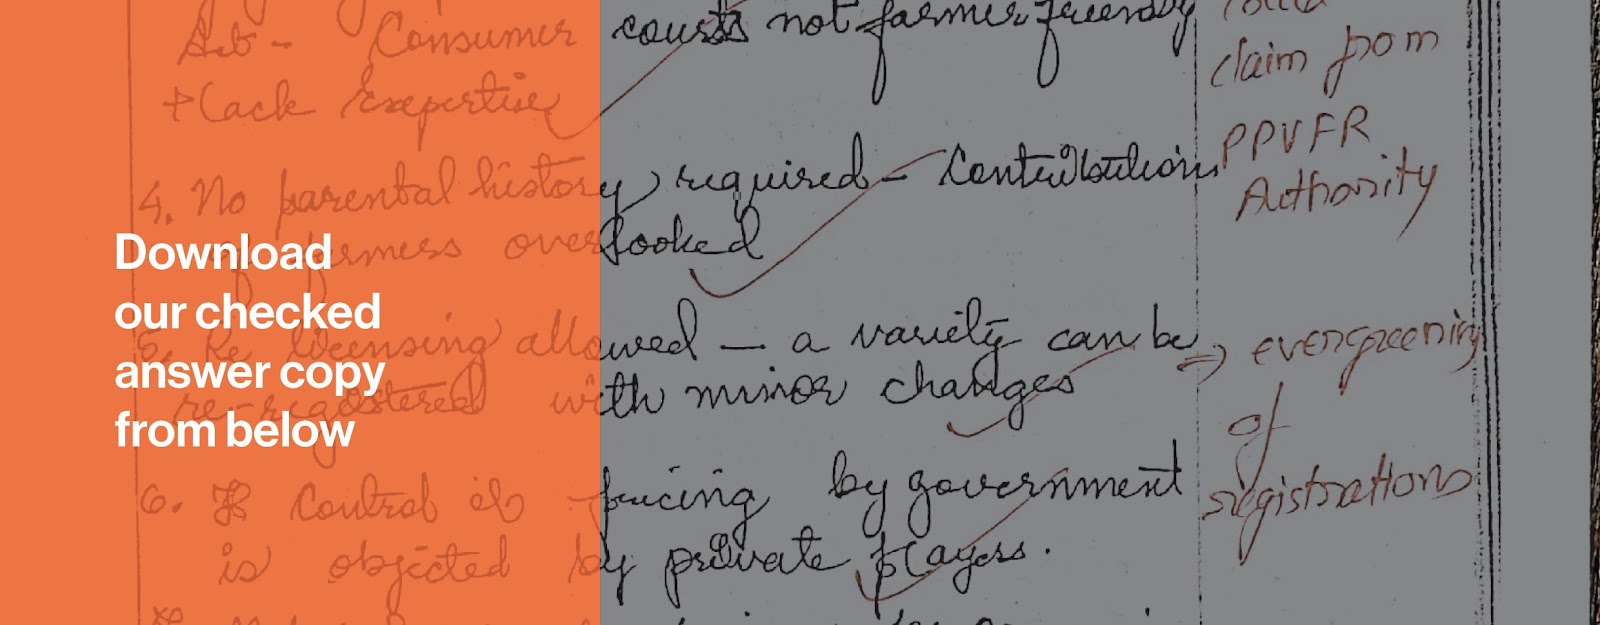 Consumer courts not farmer friendly
+ lack Expertise
4. No parental history required - contributions
of farmers overlooked
5. Re licensing allowed - a variety can be
re-registered with minor changes
6. Control is pricing by government
is objected by private players.
claim from
PPVFR
Authority
→ evergreening
of
registrations
Download
our checked
answer copy
from below